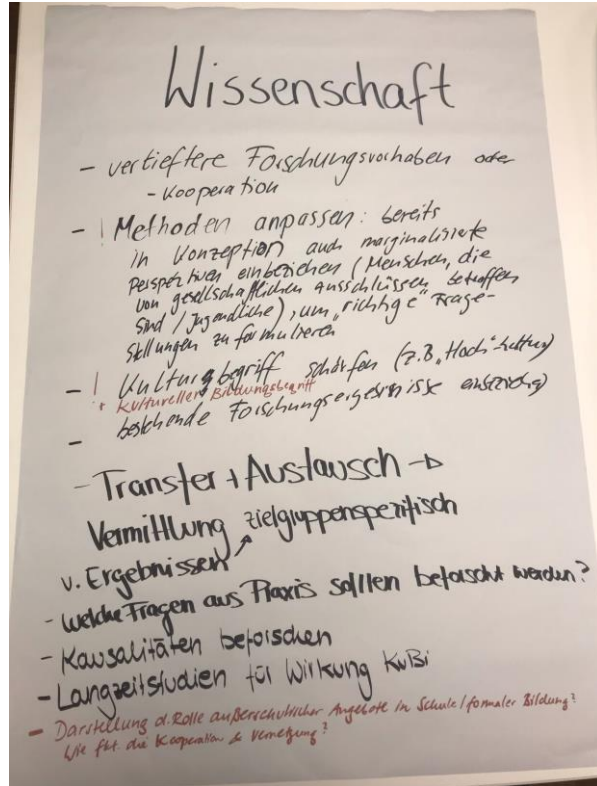 Wissenschaft
- vertieftere Forschungsvorhaben oder
- Kooperation
- ! Methoden anpassen: bereits
in Konzeption auch marginalisierte
Perspektiven einbeziehen (Menschen, die
von gesellschaftlichen Ausschlüssen betroffen
sind / Jugendliche), um "richtige" Frage-
stellungen zu formulieren
- ! Kulturbegriff schärfen (z.B. "Hoch"kultur)
+ Kultureller Bildungsbegriff
- bestehende Forschungsergebnisse
- Transfer + Austausch →
Vermittlung zielgruppenspezifisch
v. Ergebnissen
- welche Fragen aus Praxis sollten beforscht werden?
- Kausalitäten beforschen
- Langzeitstudien für Wirkung KuBi
- Darstellung d. Rolle außerschulischer Angebote in Schule / formaler Bildung?
Wie die Kooperation & Vernetzung?